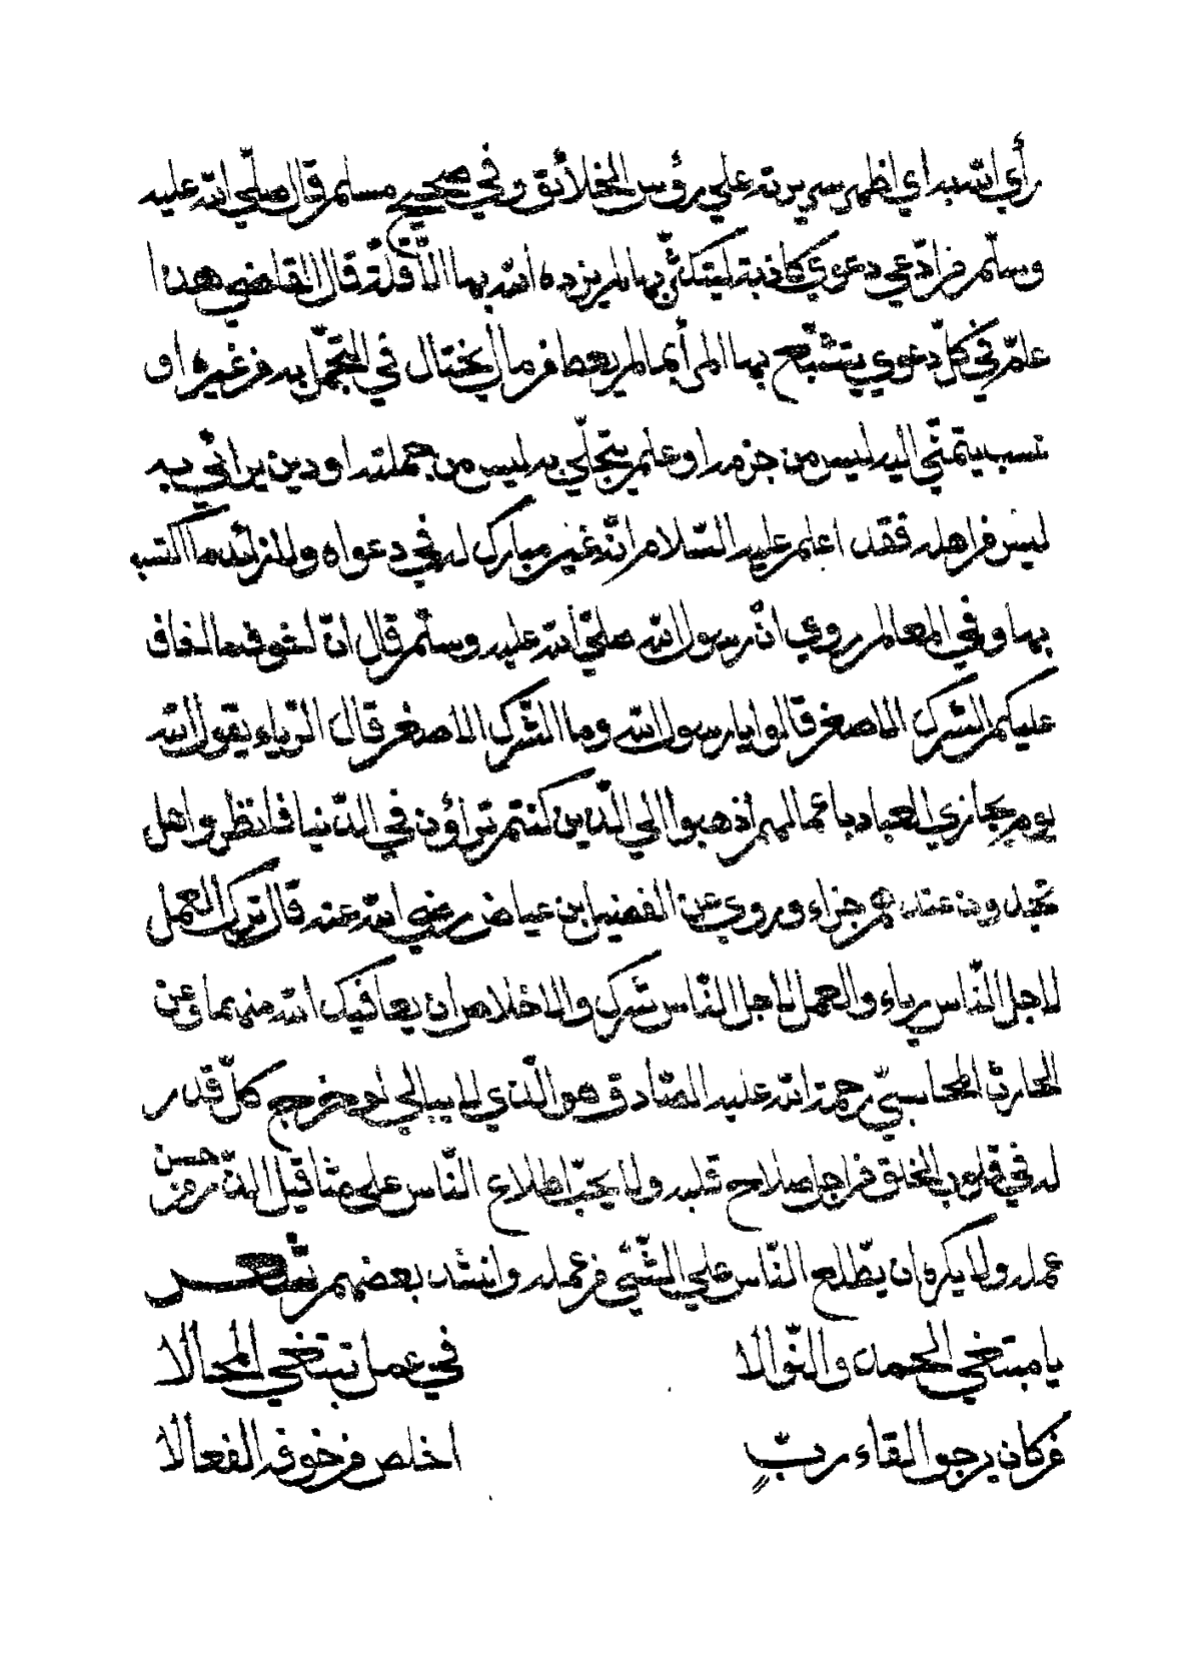 رأي الله به اي اظهر سريرته علي رؤس الخلائق وفي صحيح مسلم قال صلّي الله عليه
وسلّم من ادّعي دعوي كاذبة ليتكثّر بها لم يزده الله بها الّا قلّة قال القاضي هذا
عامّ في كلّ دعوي يتشبّع بها المرأ بما لم يعط من مال يختال في التجمّل به من غيره او
نسب ينتمي اليه ليس من جذمه او علم يتحلّي به ليس من جملته او دين يرائي به
ليس من اهله فقد اعلم عليه السّلام انّه غير مبارك له في دعواه ولا زاك ما اكتسبه
بها وفي المعالم روي انّ رسول الله صلّي الله عليه وسلّم قال انّ اخوف ما اخاف
عليكم الشرك الاصغر قالوا يا رسول الله وما الشّرك الاصغر قال الرّياء يقول الله
يوم يجازي العباد باعمالهم اذهبوا الي الّذين كنتم تراؤن في الدّنيا فانظروا هل
تجدون عندهم جزاء وروي عن الفضيل بن عياض رضي الله عنه قال ترك العمل
لاجل النّاس رياء والعمل لاجل النّاس شرك والاخلاص ان يعافيك الله منهما وعن
الحارث المحاسبيّ رحمة الله عليه الصّادق هو الّذي لا يبالي لو خرج كلّ قدر
له في قلوب الخلق من اجل صلاح قلبه ولا يحبّ اطلاع النّاس علي مثاقيل الذّر من حسن
عمله ولا يكره ان يطّلع النّاس علي السّيّئ من عمله وانشد بعضهم شعر
يا مبتغي الحمد والثّوابا في عمل تبتغي المحالا
من كان يرجو لقاء ربّ اخلص من خوفه الفعالا